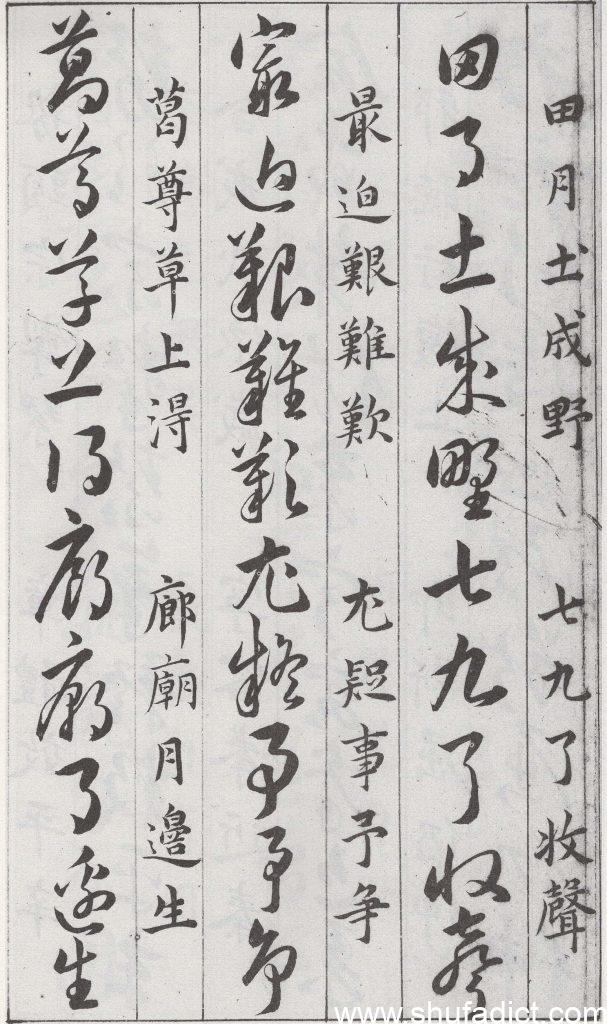 田月土成野 七九了收聲
田月土成野七九了收聲
最迫艱難歎 尤疑事予争
最迫艱難歎尤疑事予争
葛尊草上淂 廊廟月邊生
葛尊草上得廊廟月邊生
www.shufadict.com